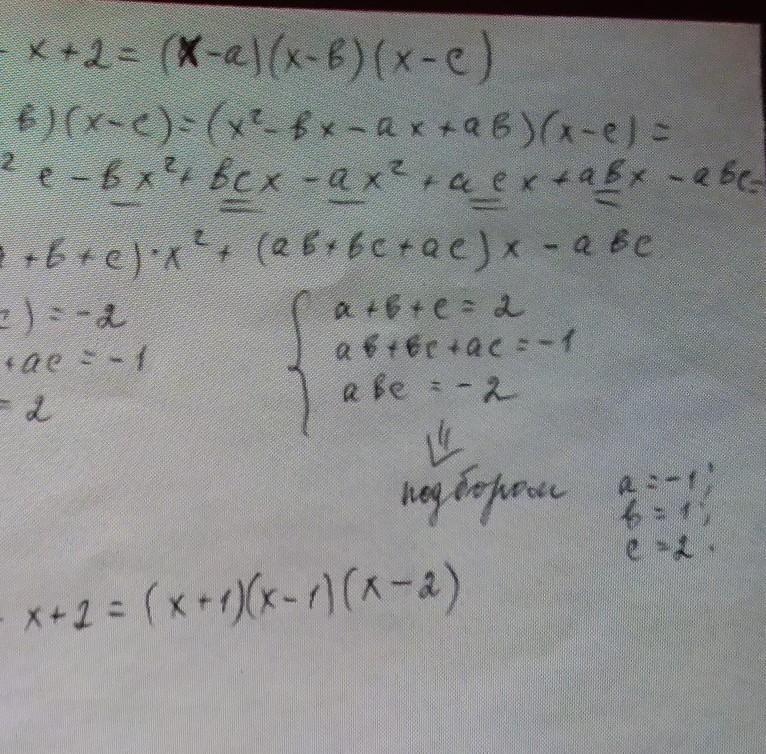 - x + 2 = (x-a)(x-в)(x-c)
в)(x-c) = (x² - вx - ax + aв)(x-c) =
² c - вx² + вcx - ax² + acx + aвx - aвc =
+ в + c)·x² + (aв + вc + ac)x - aвc
c) = -2
+ ac = -1
= 2
{ a + в + c = 2
aв + вc + ac = -1
aвc = -2
⇓
подбором
a = -1;
в = 1;
c = 2.
- x + 2 = (x+1)(x-1)(x-2)